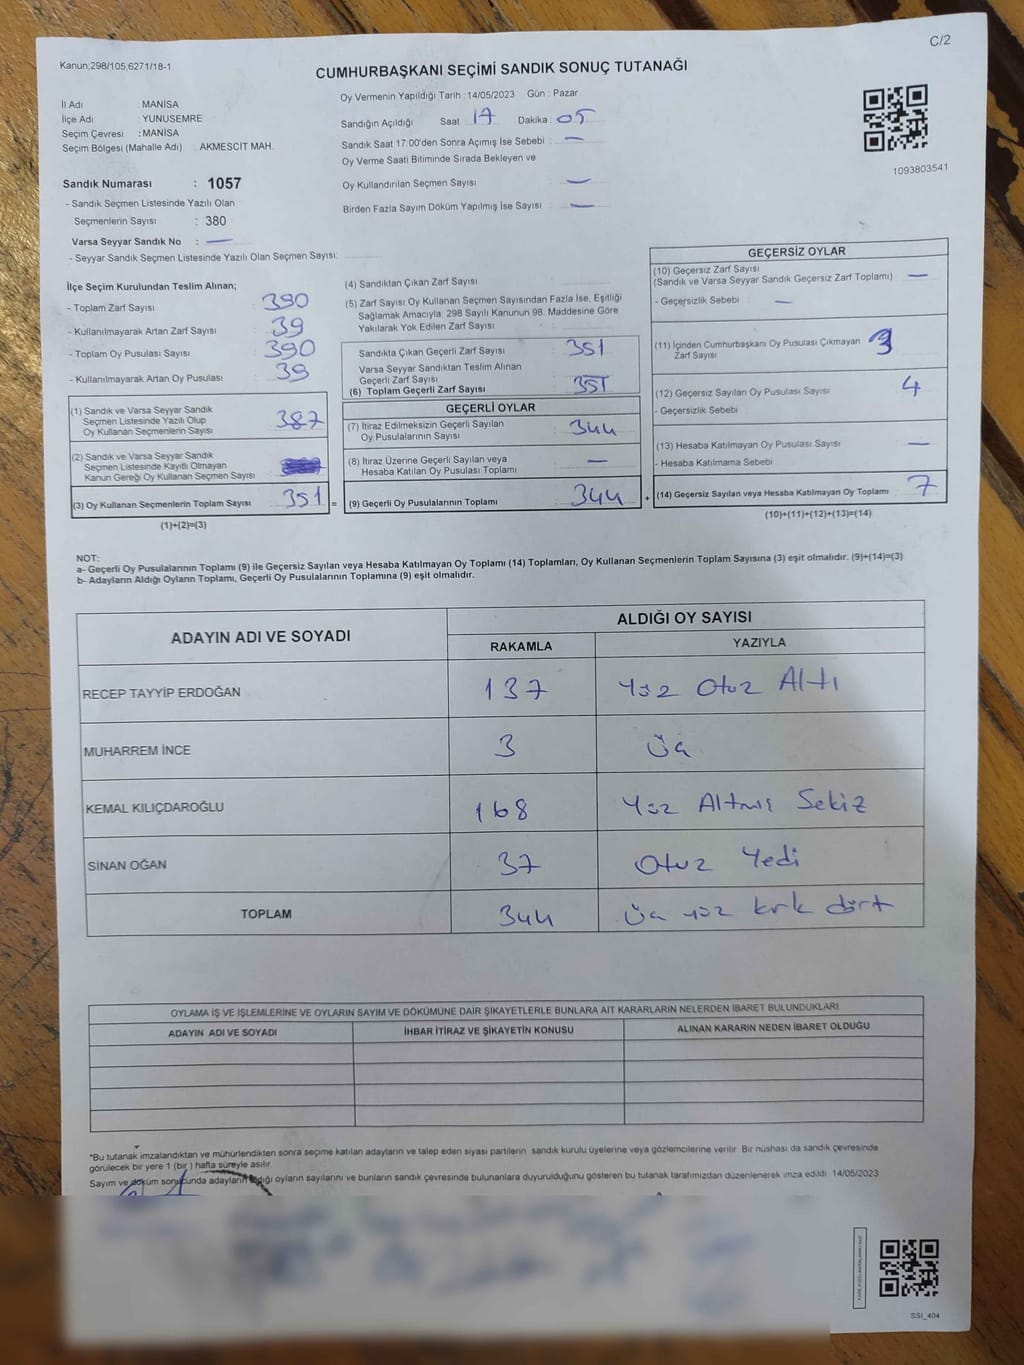 C/2
Kanun;298/105;6271/18-1
CUMHURBAŞKANI SEÇİMİ SANDIK SONUÇ TUTANAĞI
İl Adı : MANİSA
İlçe Adı : YUNUSEMRE
Seçim Çevresi : MANİSA
Seçim Bölgesi (Mahalle Adı) : AKMESCİT MAH.
Sandık Numarası : 1057
- Sandık Seçmen Listesinde Yazılı Olan
Seçmenlerin Sayısı : 380
Varsa Seyyar Sandık No : —
- Seyyar Sandık Seçmen Listesinde Yazılı Olan Seçmen Sayısı:
Oy Vermenin Yapıldığı Tarih : 14/05/2023 Gün : Pazar
Sandığın Açıldığı Saat : 17 Dakika : 05
Sandık Saat 17:00'den Sonra Açımış İse Sebebi : —
Oy Verme Saati Bitiminde Sırada Bekleyen ve
Oy Kullandırılan Seçmen Sayısı : —
Birden Fazla Sayım Döküm Yapılmış İse Sayısı : —
1093803541
İlçe Seçim Kurulundan Teslim Alınan;
- Toplam Zarf Sayısı : 390
- Kullanılmayarak Artan Zarf Sayısı : 39
- Toplam Oy Pusulası Sayısı : 390
- Kullanılmayarak Artan Oy Pusulası : 39
(1) Sandık ve Varsa Seyyar Sandık
Seçmen Listesinde Yazılı Olup
Oy Kullanan Seçmenlerin Sayısı : 387
(2) Sandık ve Varsa Seyyar Sandık
Seçmen Listesinde Kayıtlı Olmayan
Kanun Gereği Oy Kullanan Seçmen Sayısı :
(3) Oy Kullanan Seçmenlerin Toplam Sayısı : 351 =
(1)+(2)=(3)
(4) Sandıktan Çıkan Zarf Sayısı :
(5) Zarf Sayısı Oy Kullanan Seçmen Sayısından Fazla İse, Eşitliği
Sağlamak Amacıyla; 298 Sayılı Kanunun 98. Maddesine Göre
Yakılarak Yok Edilen Zarf Sayısı :
Sandıkta Çıkan Geçerli Zarf Sayısı : 351
Varsa Seyyar Sandıktan Teslim Alınan
Geçerli Zarf Sayısı :
(6) Toplam Geçerli Zarf Sayısı : 351
GEÇERLİ OYLAR
(7) İtiraz Edilmeksizin Geçerli Sayılan
Oy Pusulalarının Sayısı : 344
(8) İtiraz Üzerine Geçerli Sayılan veya
Hesaba Katılan Oy Pusulası Toplamı : —
(9) Geçerli Oy Pusulalarının Toplamı : 344 +
GEÇERSİZ OYLAR
(10) Geçersiz Zarf Sayısı
(Sandık ve Varsa Seyyar Sandık Geçersiz Zarf Toplamı) : —
- Geçersizlik Sebebi : —
(11) İçinden Cumhurbaşkanı Oy Pusulası Çıkmayan
Zarf Sayısı : 3
(12) Geçersiz Sayılan Oy Pusulası Sayısı : 4
- Geçersizlik Sebebi :
(13) Hesaba Katılmayan Oy Pusulası Sayısı : —
- Hesaba Katılmama Sebebi :
(14) Geçersiz Sayılan veya Hesaba Katılmayan Oy Toplamı : 7
(10)+(11)+(12)+(13)=(14)
NOT:
a- Geçerli Oy Pusulalarının Toplamı (9) ile Geçersiz Sayılan veya Hesaba Katılmayan Oy Toplamı (14) Toplamları, Oy Kullanan Seçmenlerin Toplam Sayısına (3) eşit olmalıdır. (9)+(14)=(3)
b- Adayların Aldığı Oyların Toplamı, Geçerli Oy Pusulalarının Toplamına (9) eşit olmalıdır.
ADAYIN ADI VE SOYADI ALDIĞI OY SAYISI
RAKAMLA YAZIYLA
RECEP TAYYİP ERDOĞAN 137 Yüz Otuz Altı
MUHARREM İNCE 3 Üç
KEMAL KILIÇDAROĞLU 168 Yüz Altmış Sekiz
SİNAN OĞAN 37 Otuz Yedi
TOPLAM 344 Üç yüz kırk dört
OYLAMA İŞ VE İŞLEMLERİNE VE OYLARIN SAYIM VE DÖKÜMÜNE DAİR ŞİKAYETLERLE BUNLARA AİT KARARLARIN NELERDEN İBARET BULUNDUKLARI
ADAYIN ADI VE SOYADI İHBAR İTİRAZ VE ŞİKAYETİN KONUSU ALINAN KARARIN NEDEN İBARET OLDUĞU
*Bu tutanak imzalandıktan ve mühürlendikten sonra seçime katılan adayların ve talep eden siyasi partilerin sandık kurulu üyelerine veya gözlemcilerine verilir. Bir nüshası da sandık çevresinde
görülecek bir yere 1 (bir ) hafta süreyle asılır.
Sayım ve döküm sonucunda adayların aldığı oyların sayılarını ve bunların sandık çevresinde bulunanlara duyurulduğunu gösteren bu tutanak tarafımızdan düzenlenerek imza edildi. 14/05/2023
SSI_404